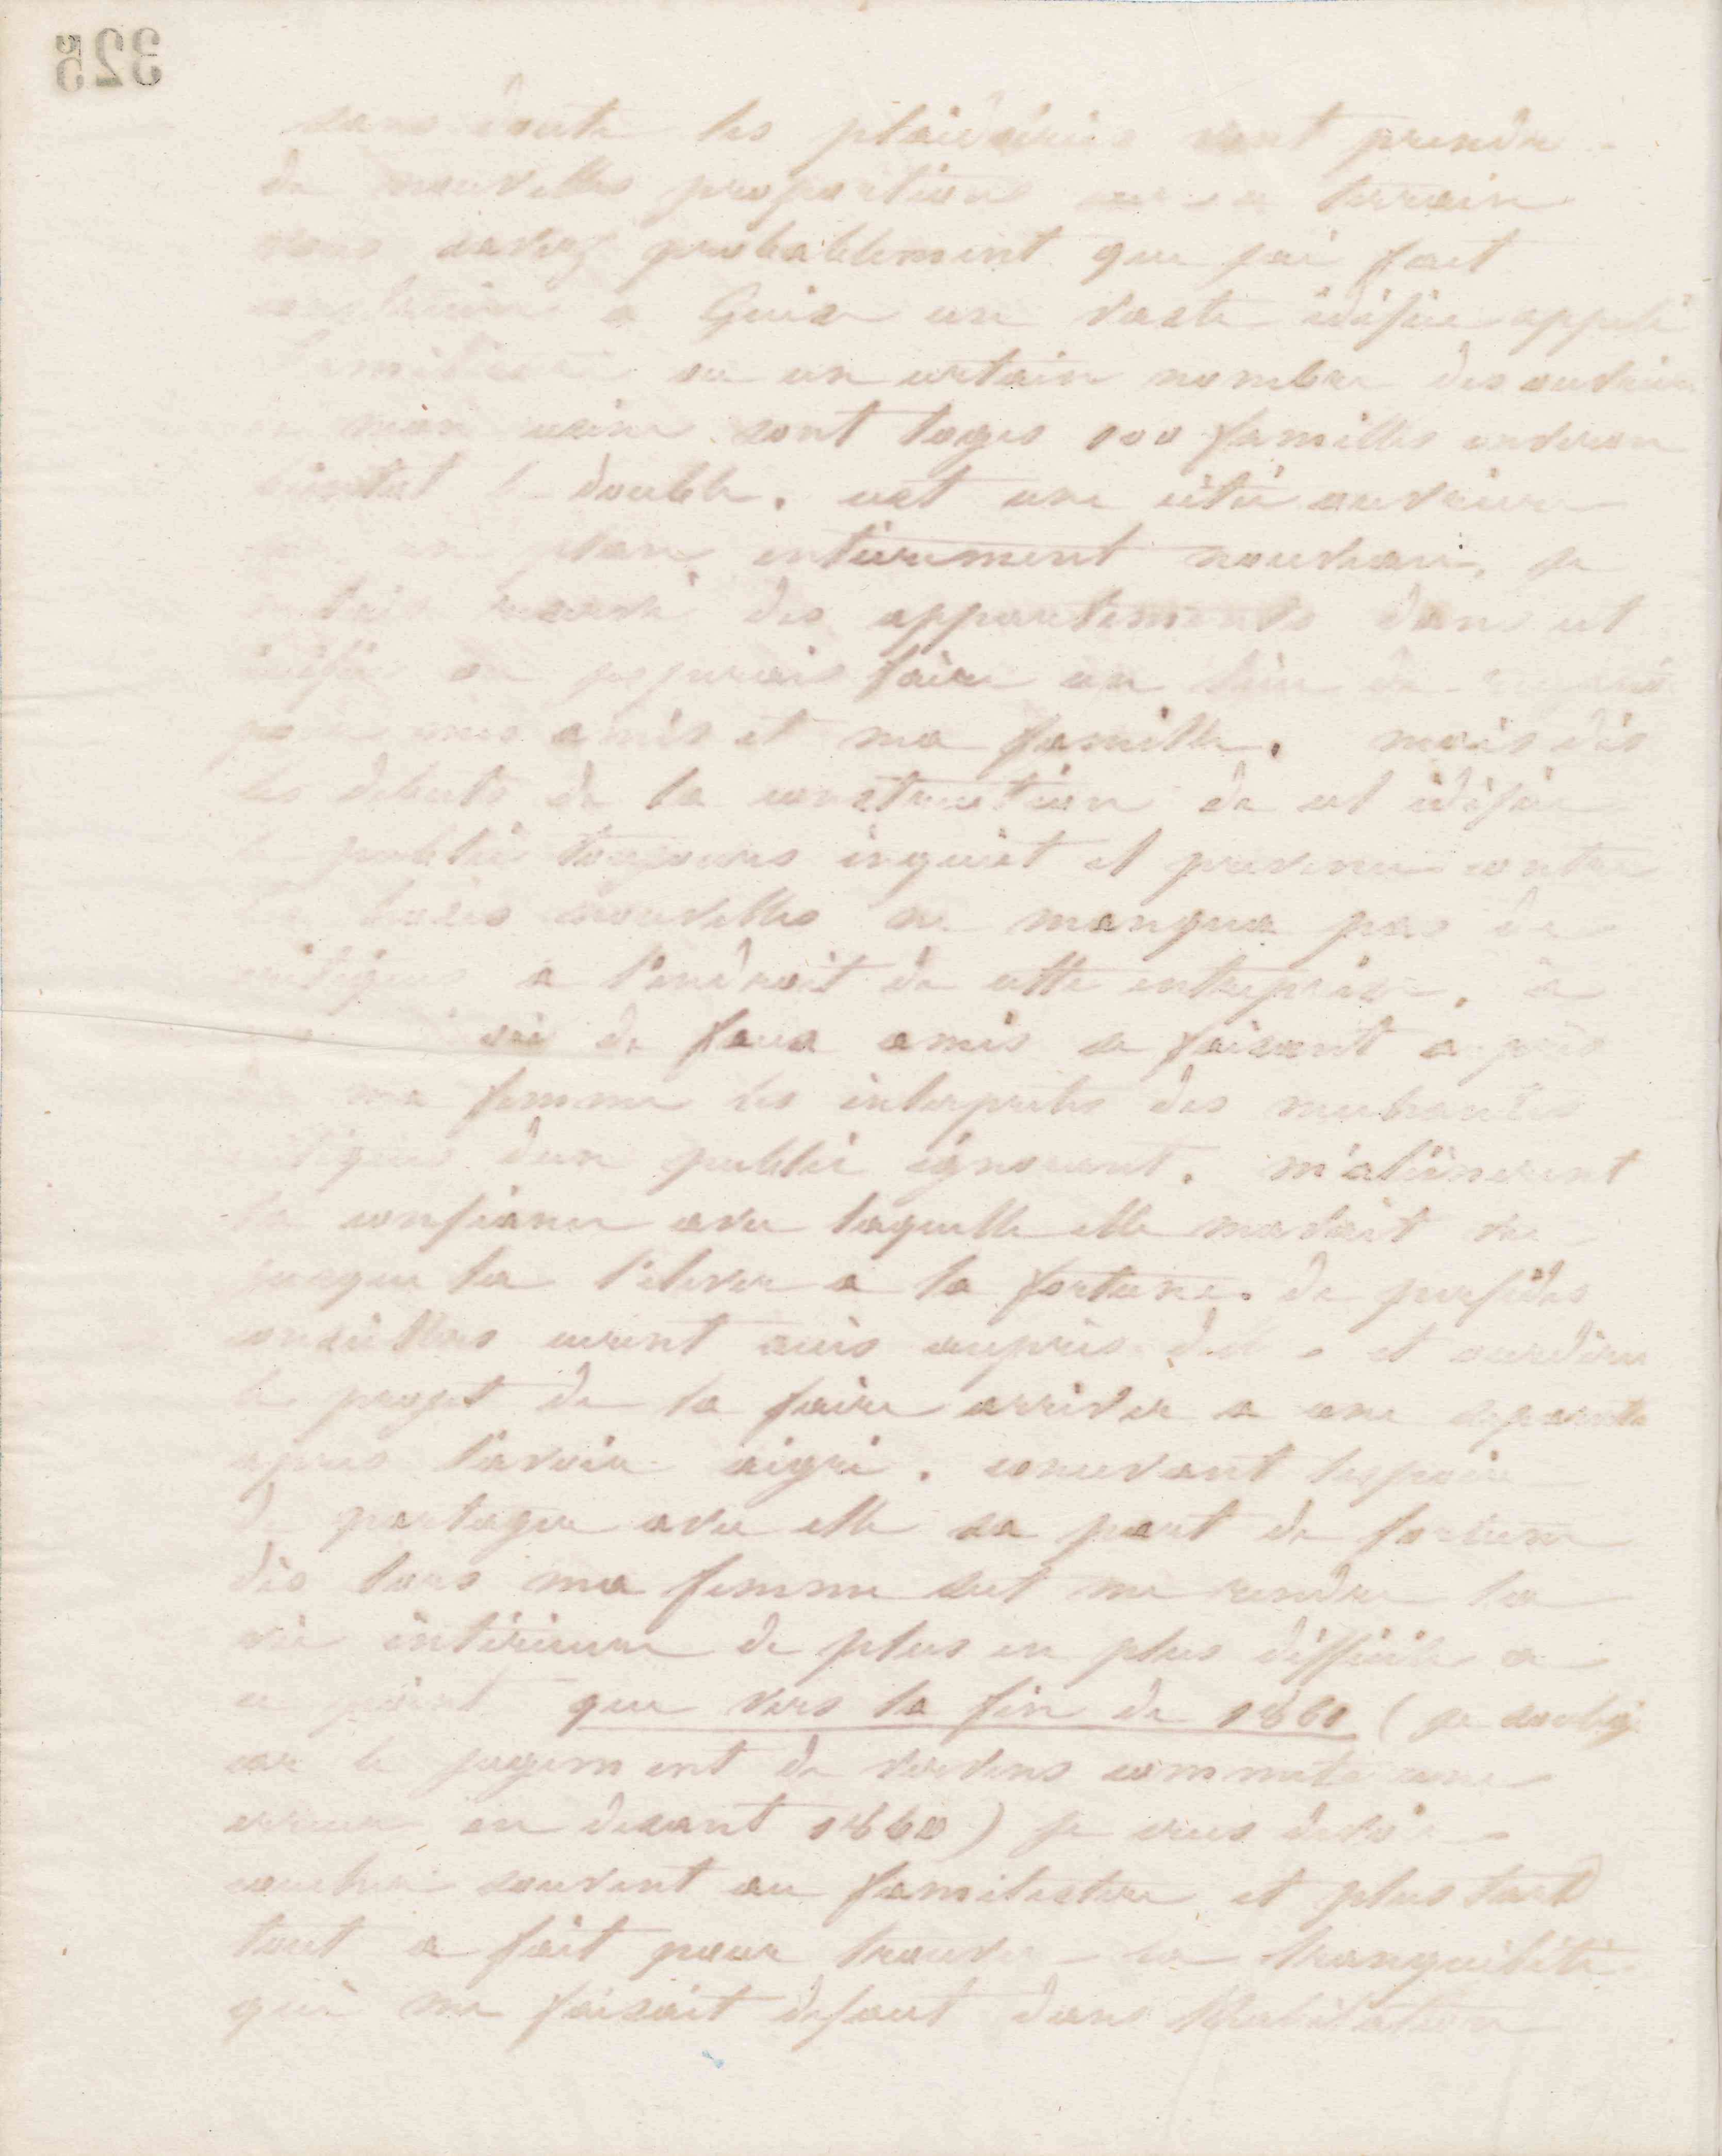 325
sans doute les plaidoiries vont prendre
de nouvelles proportions sur ce terrain
vous savez probablement que jai fait
construire a Guise un vaste édifice appelé
familistere ou un certain nombre des ouvriers
de mon usine sont logés 100 familles environ
bientot le double. cest une cité ouvriere
sur un plan entièrement nouveau, je
des appartements dans cet
édifice ou je pourais faire un lieu de
pour mes amis et ma famille. mais dès
les debuts de la construction de cet édifice
le public toujours inquiet et prevenu contre
les choses nouvelles ne manqua pas de
critiques a l'endroit de cette entreprise. a
de faux amis se faisant auprès
de ma femme les interpretes des mechantes
critiques dun public ignorant. m'aliénerent
la confiance avec laquelle elle mavait vu
jusque la l'elever a la fortune. de perfides
conseillers eurent accès auprès delle et ourdirent
le projet de la faire arriver a une
apres l'avoir aigri. concevant lespoir
de partager avec elle sa part de fortune
dès lors ma femme sut me rendre la
vie intérieure de plus en plus difficile a
ce point que vers la fin de 1861 (je souligne
car le jugement de vervins commet une
erreur en disant 1860) je dus
coucher souvent au familistere et plus tard
tout a fait pour trouver la tranquilité
qui me faisait defaut dans l'habitation